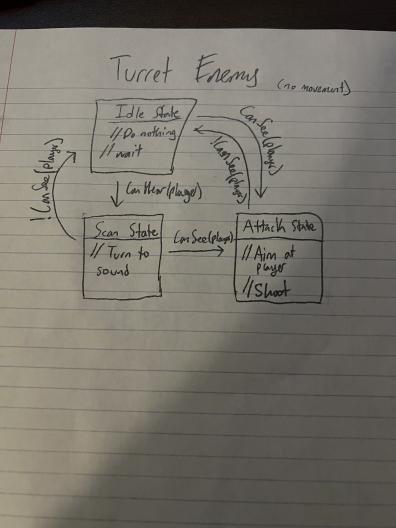 Turret Enemy (no movement)
Idle State
//Do nothing
//wait
CanSee(player)
!CanSee(player)
!CanSee(player)
CanHear(player)
Scan State
// Turn to
sound
CanSee(player)
Attack State
//Aim at
player
//Shoot